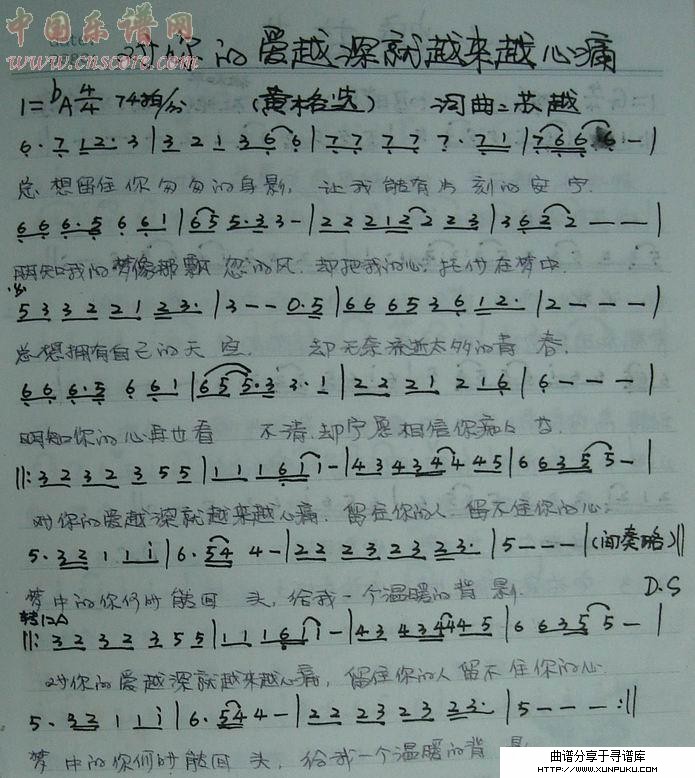 中国乐谱网
www.cnscore.com
对你的爱越深就越来越心痛
1=bA 4/4 74拍/分 (黄格选) 词曲:苏越
6·7 12·3|3 2 1 3 6 6|77 77 7·71|7666-|
总想留住你匆匆的身影, 让我能有片刻的安宁.
66 6·5 6 61|65 5·3 3-|22 212 2 23|3 62 2---|
明知我的梦像那飘忽的风. 却把我的心托付在梦中.
53 32 21 23·|3--0·5|66 65 36 12·|2---|
总想拥有自己的天空. 却无奈流逝太多的青春.
66 6·5 6 61|65 5·3 3·1|22 21 2 16|6---|
明知你的心再也看 不清.却宁愿相信你痴人
‖:32 32 3 55|11 161 1-|43 434 4 45|66 35 5-|
对你的爱越深就越来越心痛. 留住你的人 留不住你的心.
5·32 1 1i|6·54 4-|22 23 23 23·|5---|(间奏略)‖
梦中的你何时能回 头,给我一个温暖的背影. D.S
转1=A
‖:32 32 3 55|11 161 1-|43 4344 45|66 35 5-|
对你的爱越深就越来越心痛, 留住你的人留不住你的心
5·32 1 1i|6·54 4-|22 23 23 23·|5---:‖
梦中的你何时能回 头, 给我一个温暖的背 影
曲谱分享于寻谱库
HTTP://WWW.XUNPUKU.COM